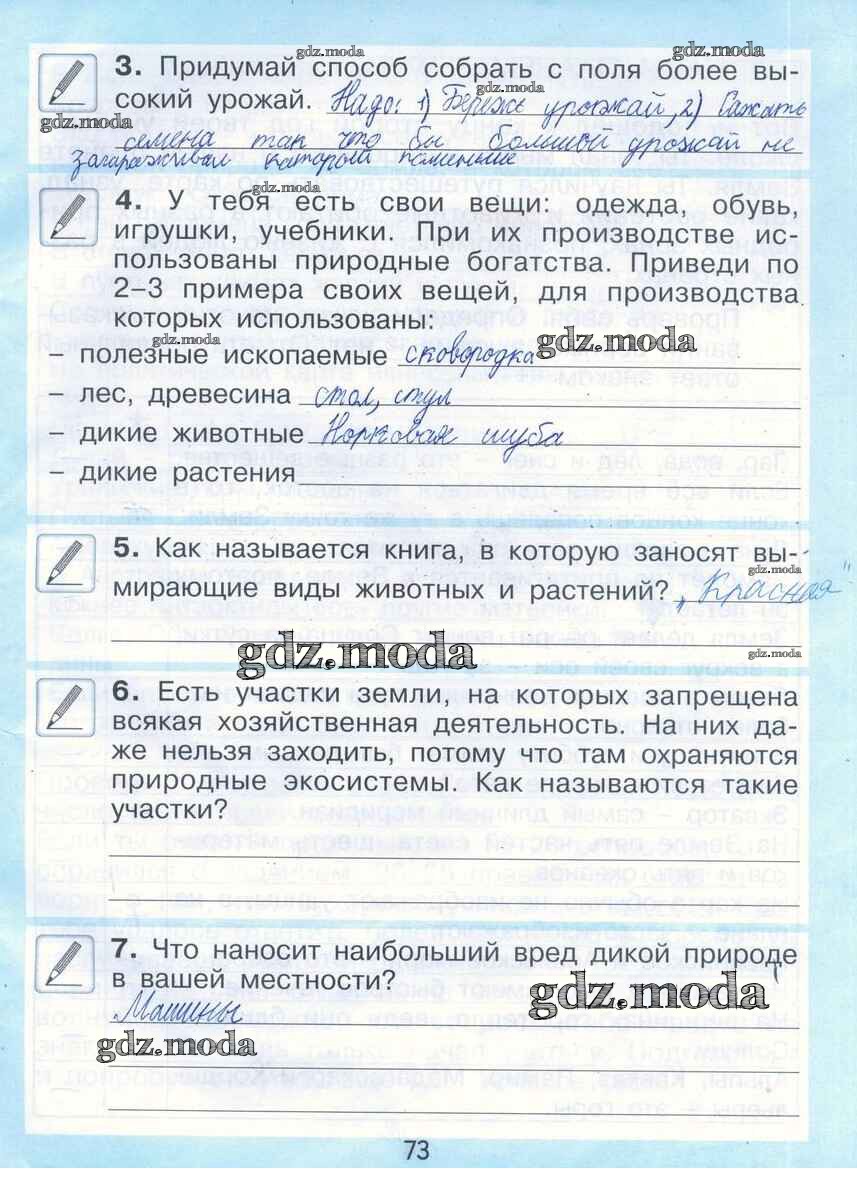 gdz.moda
gdz.moda
3. Придумай способ собрать с поля более вы-
gdz.moda
сокий урожай. Надо: 1) Бережь урожай, 2) Сажать
gdz.moda
семена так что бы большой урожай не
загараживал который поменьше
gdz.moda
4. У тебя есть свои вещи: одежда, обувь,
игрушки, учебники. При их производстве ис-
пользованы природные богатства. Приведи по
2–3 примера своих вещей, для производства
которых использованы:
gdz.moda
– полезные ископаемые сковородка
gdz.moda
– лес, древесина стол, стул
– дикие животные Норковая шуба
– дикие растения
5. Как называется книга, в которую заносят вы-
gdz.moda
мирающие виды животных и растений? „Красная"
gdz.moda
gdz.moda
6. Есть участки земли, на которых запрещена
всякая хозяйственная деятельность. На них да-
же нельзя заходить, потому что там охраняются
природные экосистемы. Как называются такие
участки?
7. Что наносит наибольший вред дикой природе
в вашей местности?
gdz.moda
Машины
gdz.moda
73